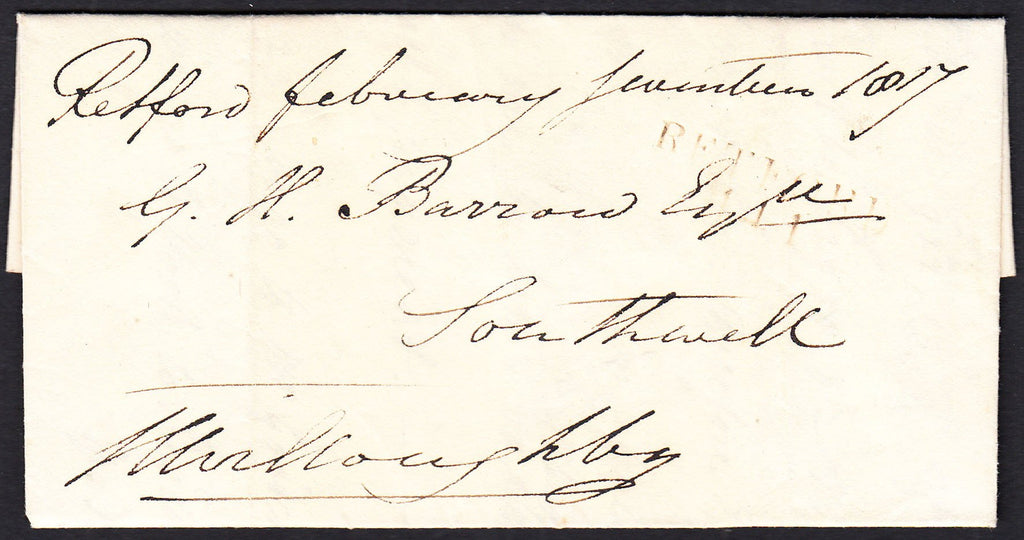 Retford february seventeen 1817
RETFORD
G. H. Barrow Esqr
Southwell
Willoughby